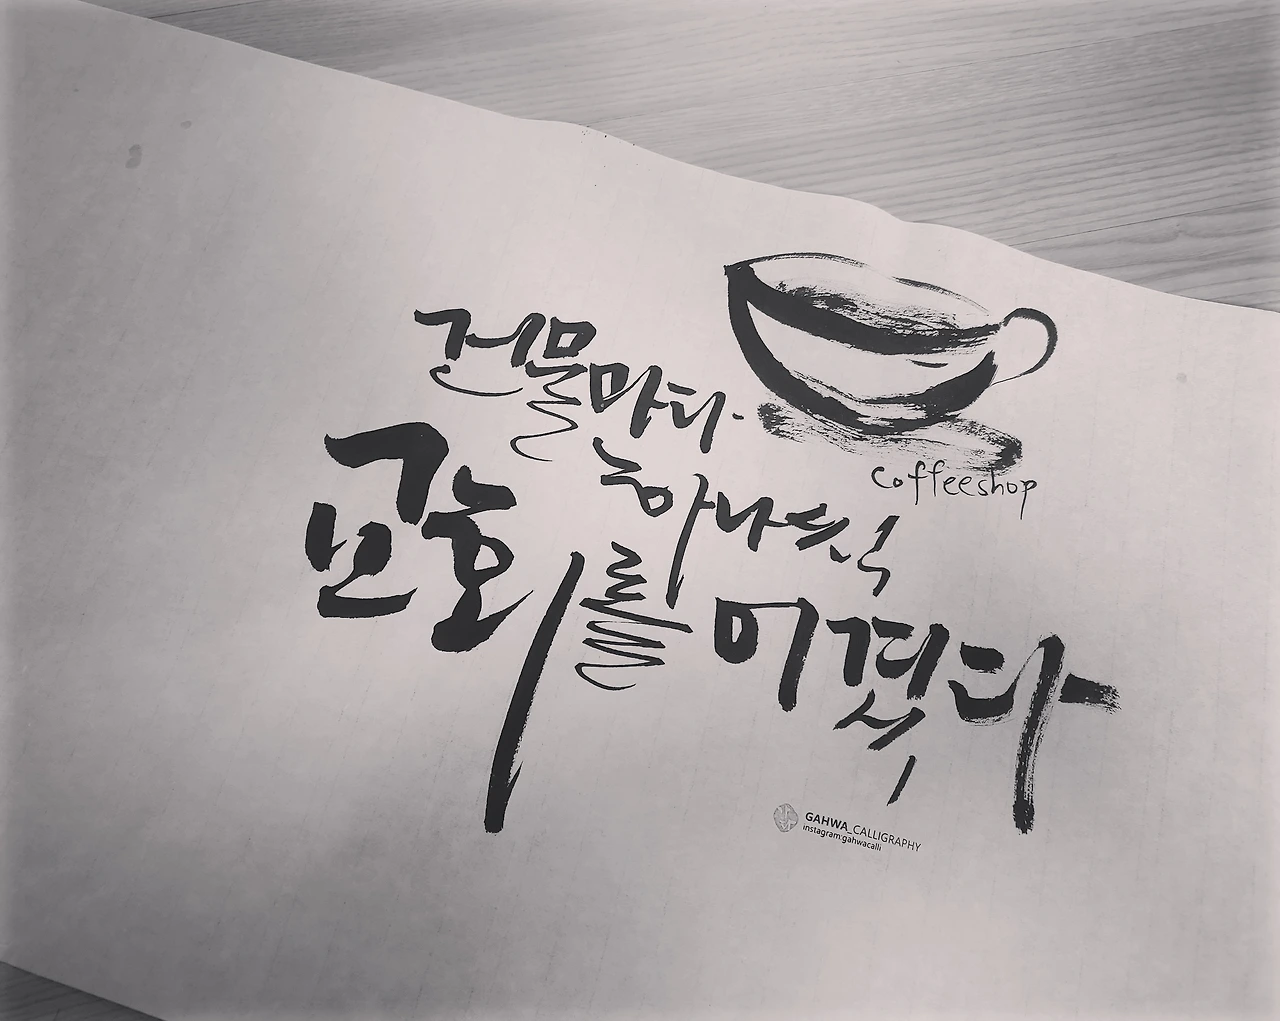 건물마다
coffeeshop
하나씩
교회를 이겼다
GAHWA_CALLIGRAPHY
instagram:gahwacalli